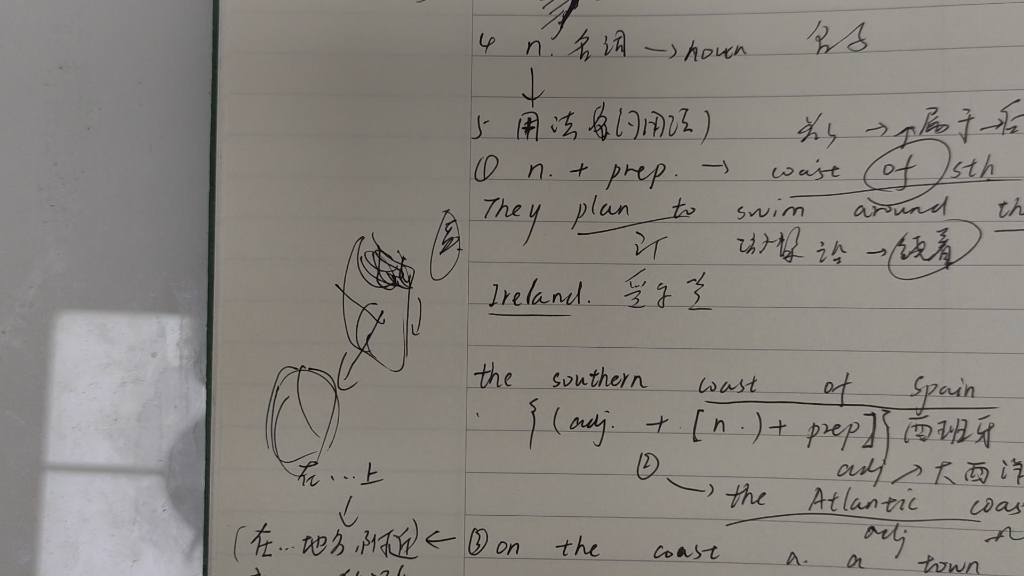 4 n. 名词 → noun 名字
↓
5 用法 (习用法) → 属于
① n. + prep. → coast of sth
They plan to swim around th
计 → 绕着
Ireland. 爱尔兰
the southern coast of Spain
{(adj. + [n.) + prep]} 西班牙
② adj → 大西洋
→ the Atlantic coas
在…上
adj n
↓
(在…地名附近) ← ③ on the coast n. a town